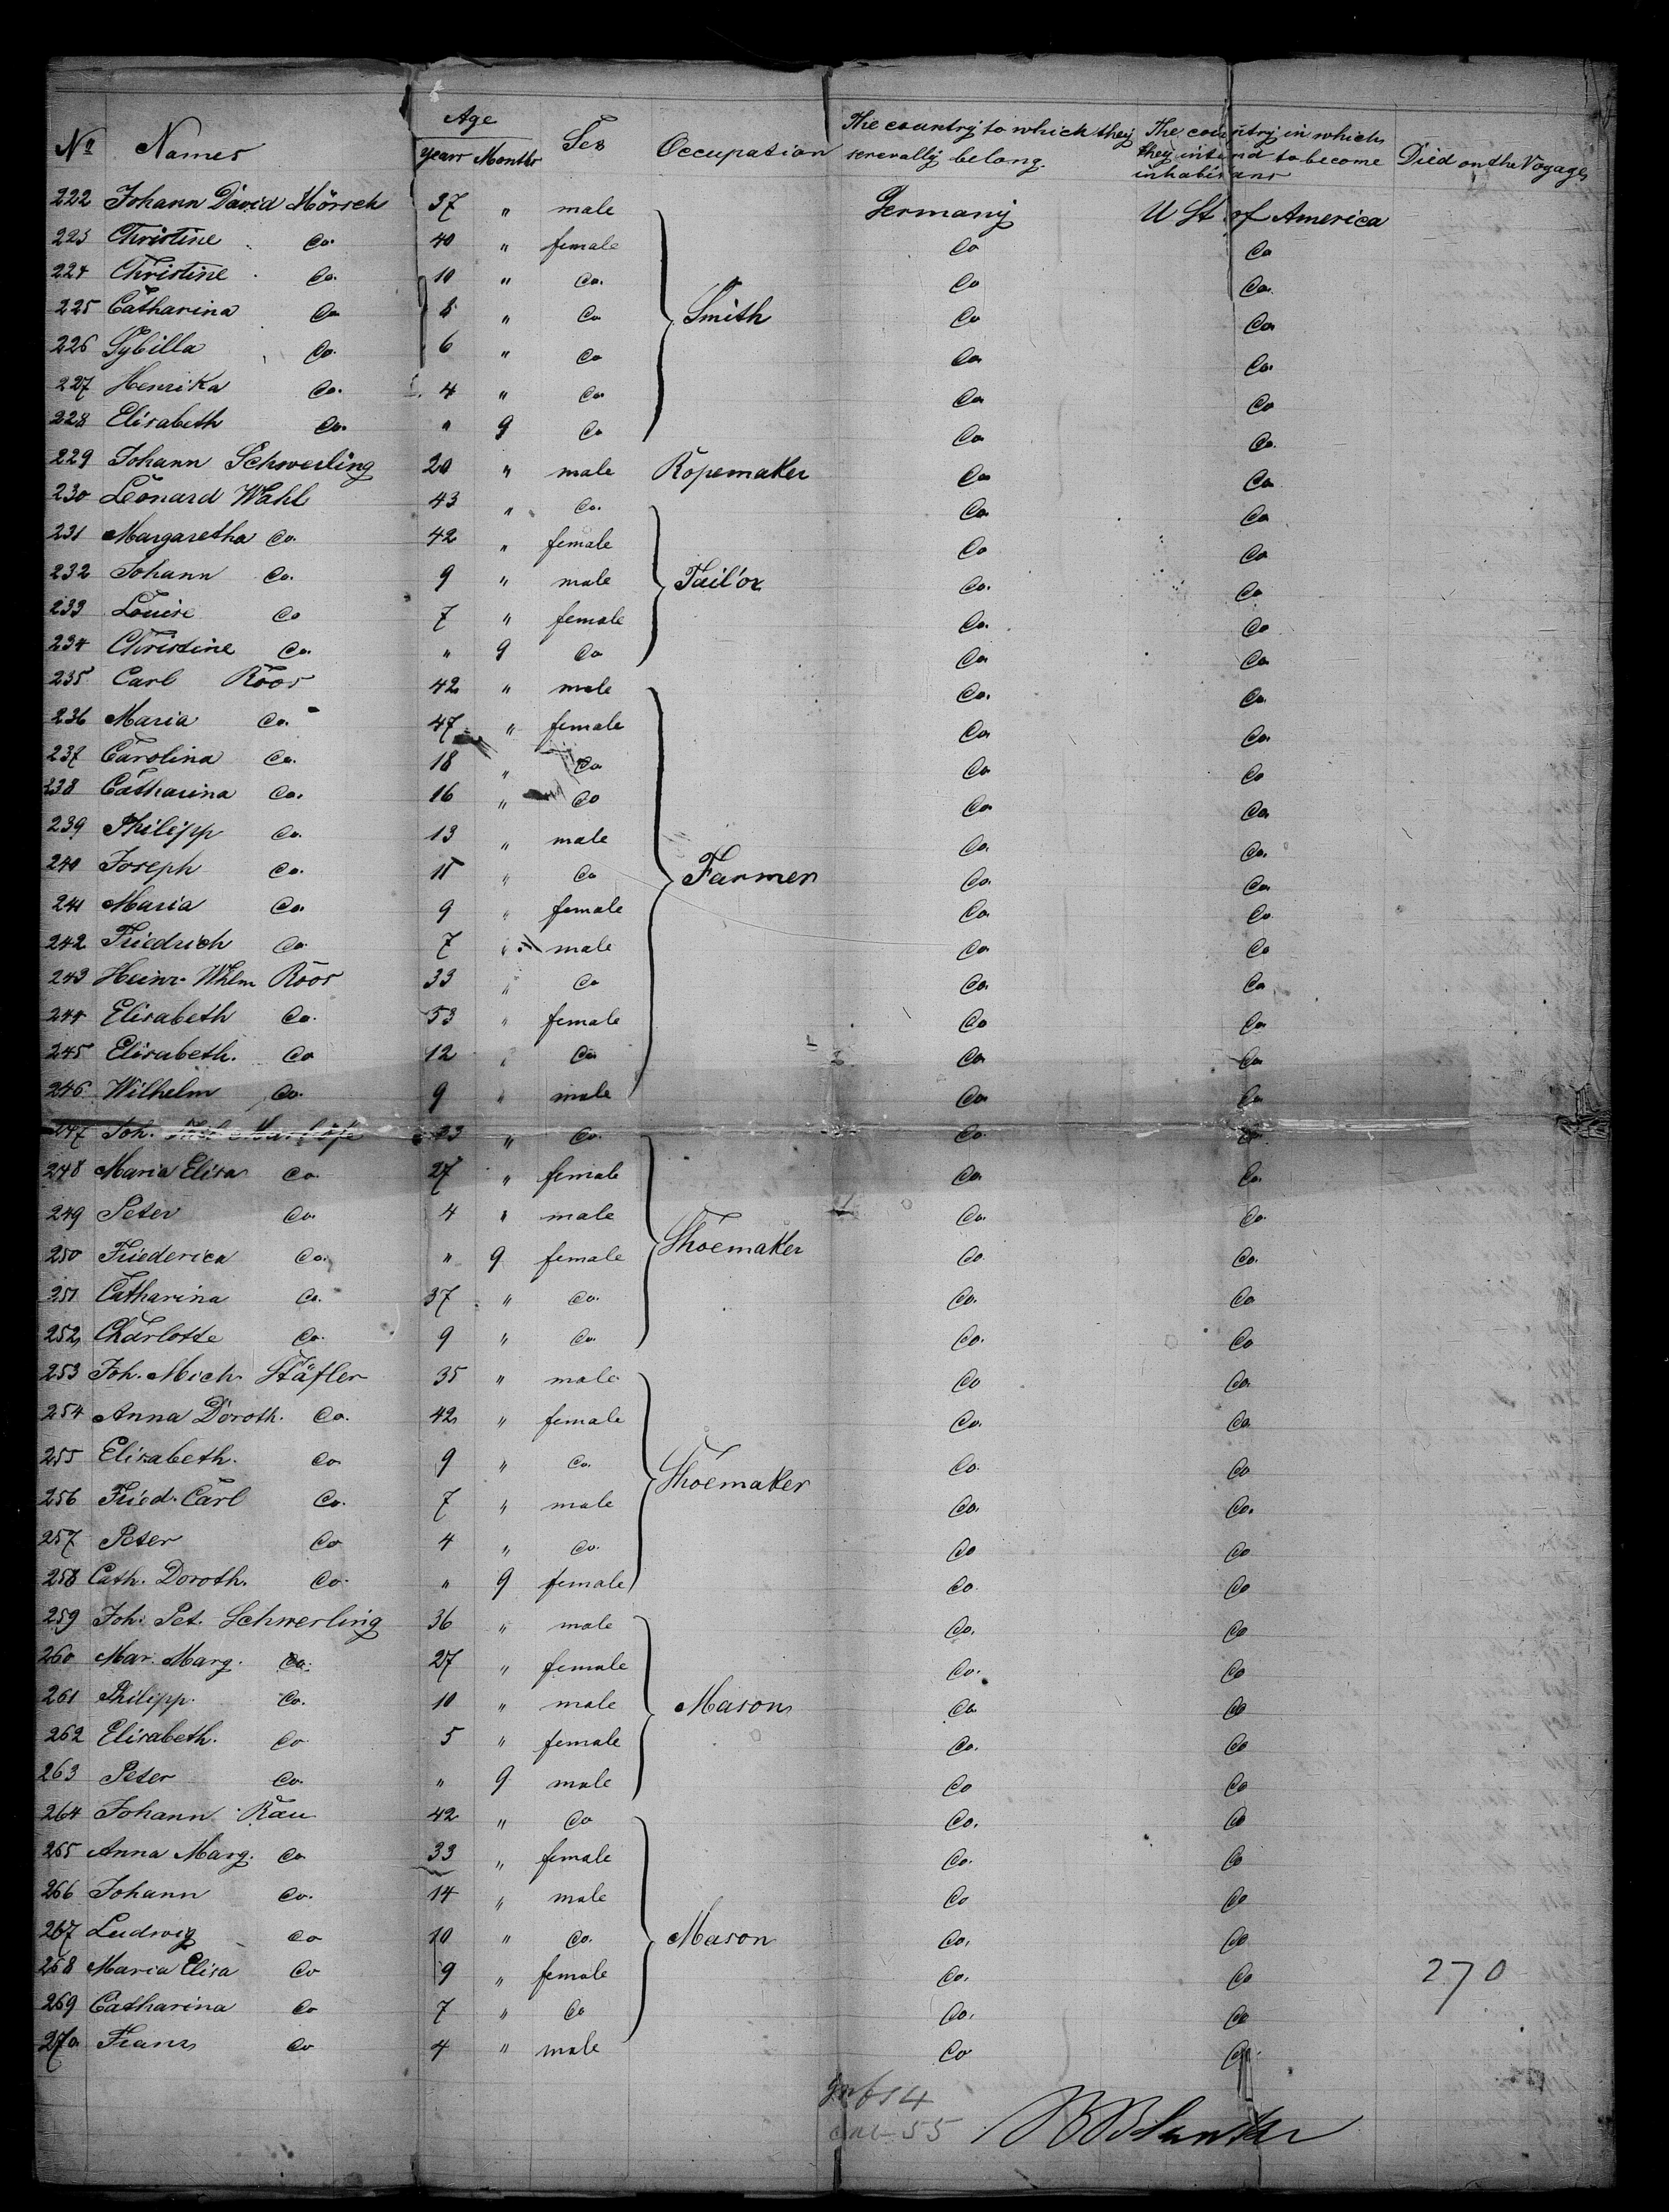 Age
The country to which they The country in which
No Names Years Months Sex Occupation severally belong. they intend to become Died on the Voyage
inhabitans
222 Johann David Hörsch 37 " male Germany U St of America
223 Christine Do. 40 " female Do Do
224 Christine Do. 10 " Do. Do Do.
225 Catharina Do " Do Smith Do Do
226 Sybilla Do. 6 " Do Do Do.
227 Henrika Do. 4 " Do Do Do
228 Elisabeth Do. " 9 Do Do Do.
229 Johann Schwerling 20 " male Ropemaker Do Do
230 Leonard Wahl 43 " Do. Do Do
231 Margaretha Do. 42 " female Do Do
232 Johann Do. 9 " male Tailor Do. Do
233 Louise Do 7 " female Do. Do
234 Christine Do. " 9 Do Do Do
235 Carl Roos 42 " male Do. Do.
236 Maria Do. 47 " female Do Do.
237 Carolina Do. 18 " Do Do Do
238 Catharina Do. 16 " Do Do Do
239 Philipp Do. 13 " male Do. Do.
240 Joseph Do. 11 " Do Farmer Do. Do
241 Maria Do. 9 " female Do Do.
242 Friedrich Do. 7 " male Do Do
243 Heinr. Whlm Roos 33 " Do Do. Do
244 Elisabeth Do. 53 " female Do Do
245 Elisabeth. Do 12 " Do Do Do
246 Wilhelm Do. 9 " male Do Do
247 Joh. 23 " Do. Do. Do
248 Maria Elisa Do. 27 " female Do. Do.
249 Peter Do. 4 " male Do. Do.
250 Friederica Do. " 9 female Shoemaker Do Do.
251 Catharina Do. 37 " Do. Do. Do
252 Charlotte Do. 9 " Do. Do. Do
253 Joh. Mich. Stäfler 35 " male Do Do.
254 Anna Doroth. Do. 42 " female Do. Do.
255 Elisabeth. Do 9 " Do. Do. Do
256 Fried. Carl Do. 7 " male Shoemaker Do. Do.
257 Peter Do 4 " Do. Do Do
258 Cath. Doroth. Do. " 9 female Do. Do
259 Joh. Pet. Schwerling 36 " male Do. Do
260 Mar. Marg. Do. 27 " female Do. Do
261 Philipp. Do. 10 " male Mason Do. Do
262 Elisabeth. Do 5 " female Do. Do
263 Peter Do. " 9 male Do Do
264 Johann Rau 42 " Do Do. Do
265 Anna Marg. Do 33 " female Do. Do
266 Johann Do. 14 " male Do Do
267 Ludwig Do 10 " Do. Mason Do. Do
268 Maria Elisa Do 9 " female Do. Do 270
269 Catharina Do 7 " Do Do. Do
270 Franz Do 4 " male Do Do.
inf 14
55